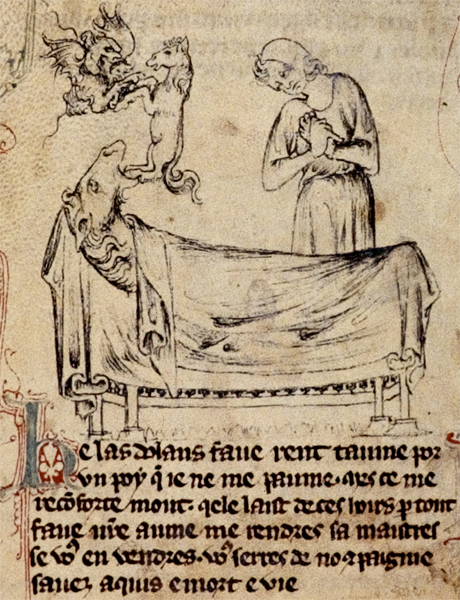 he las dolans fauue rent taume por
vn poy q̃ ie ne me paume. mes ce me
recõforte mout. qele laist de ces hoirs p tout
fauue nr̃e aume me rendres sa maistres
se vo⁹ en vendres. vo⁹ serres de no ꝯpaignie
sauez aquis e mort e vie